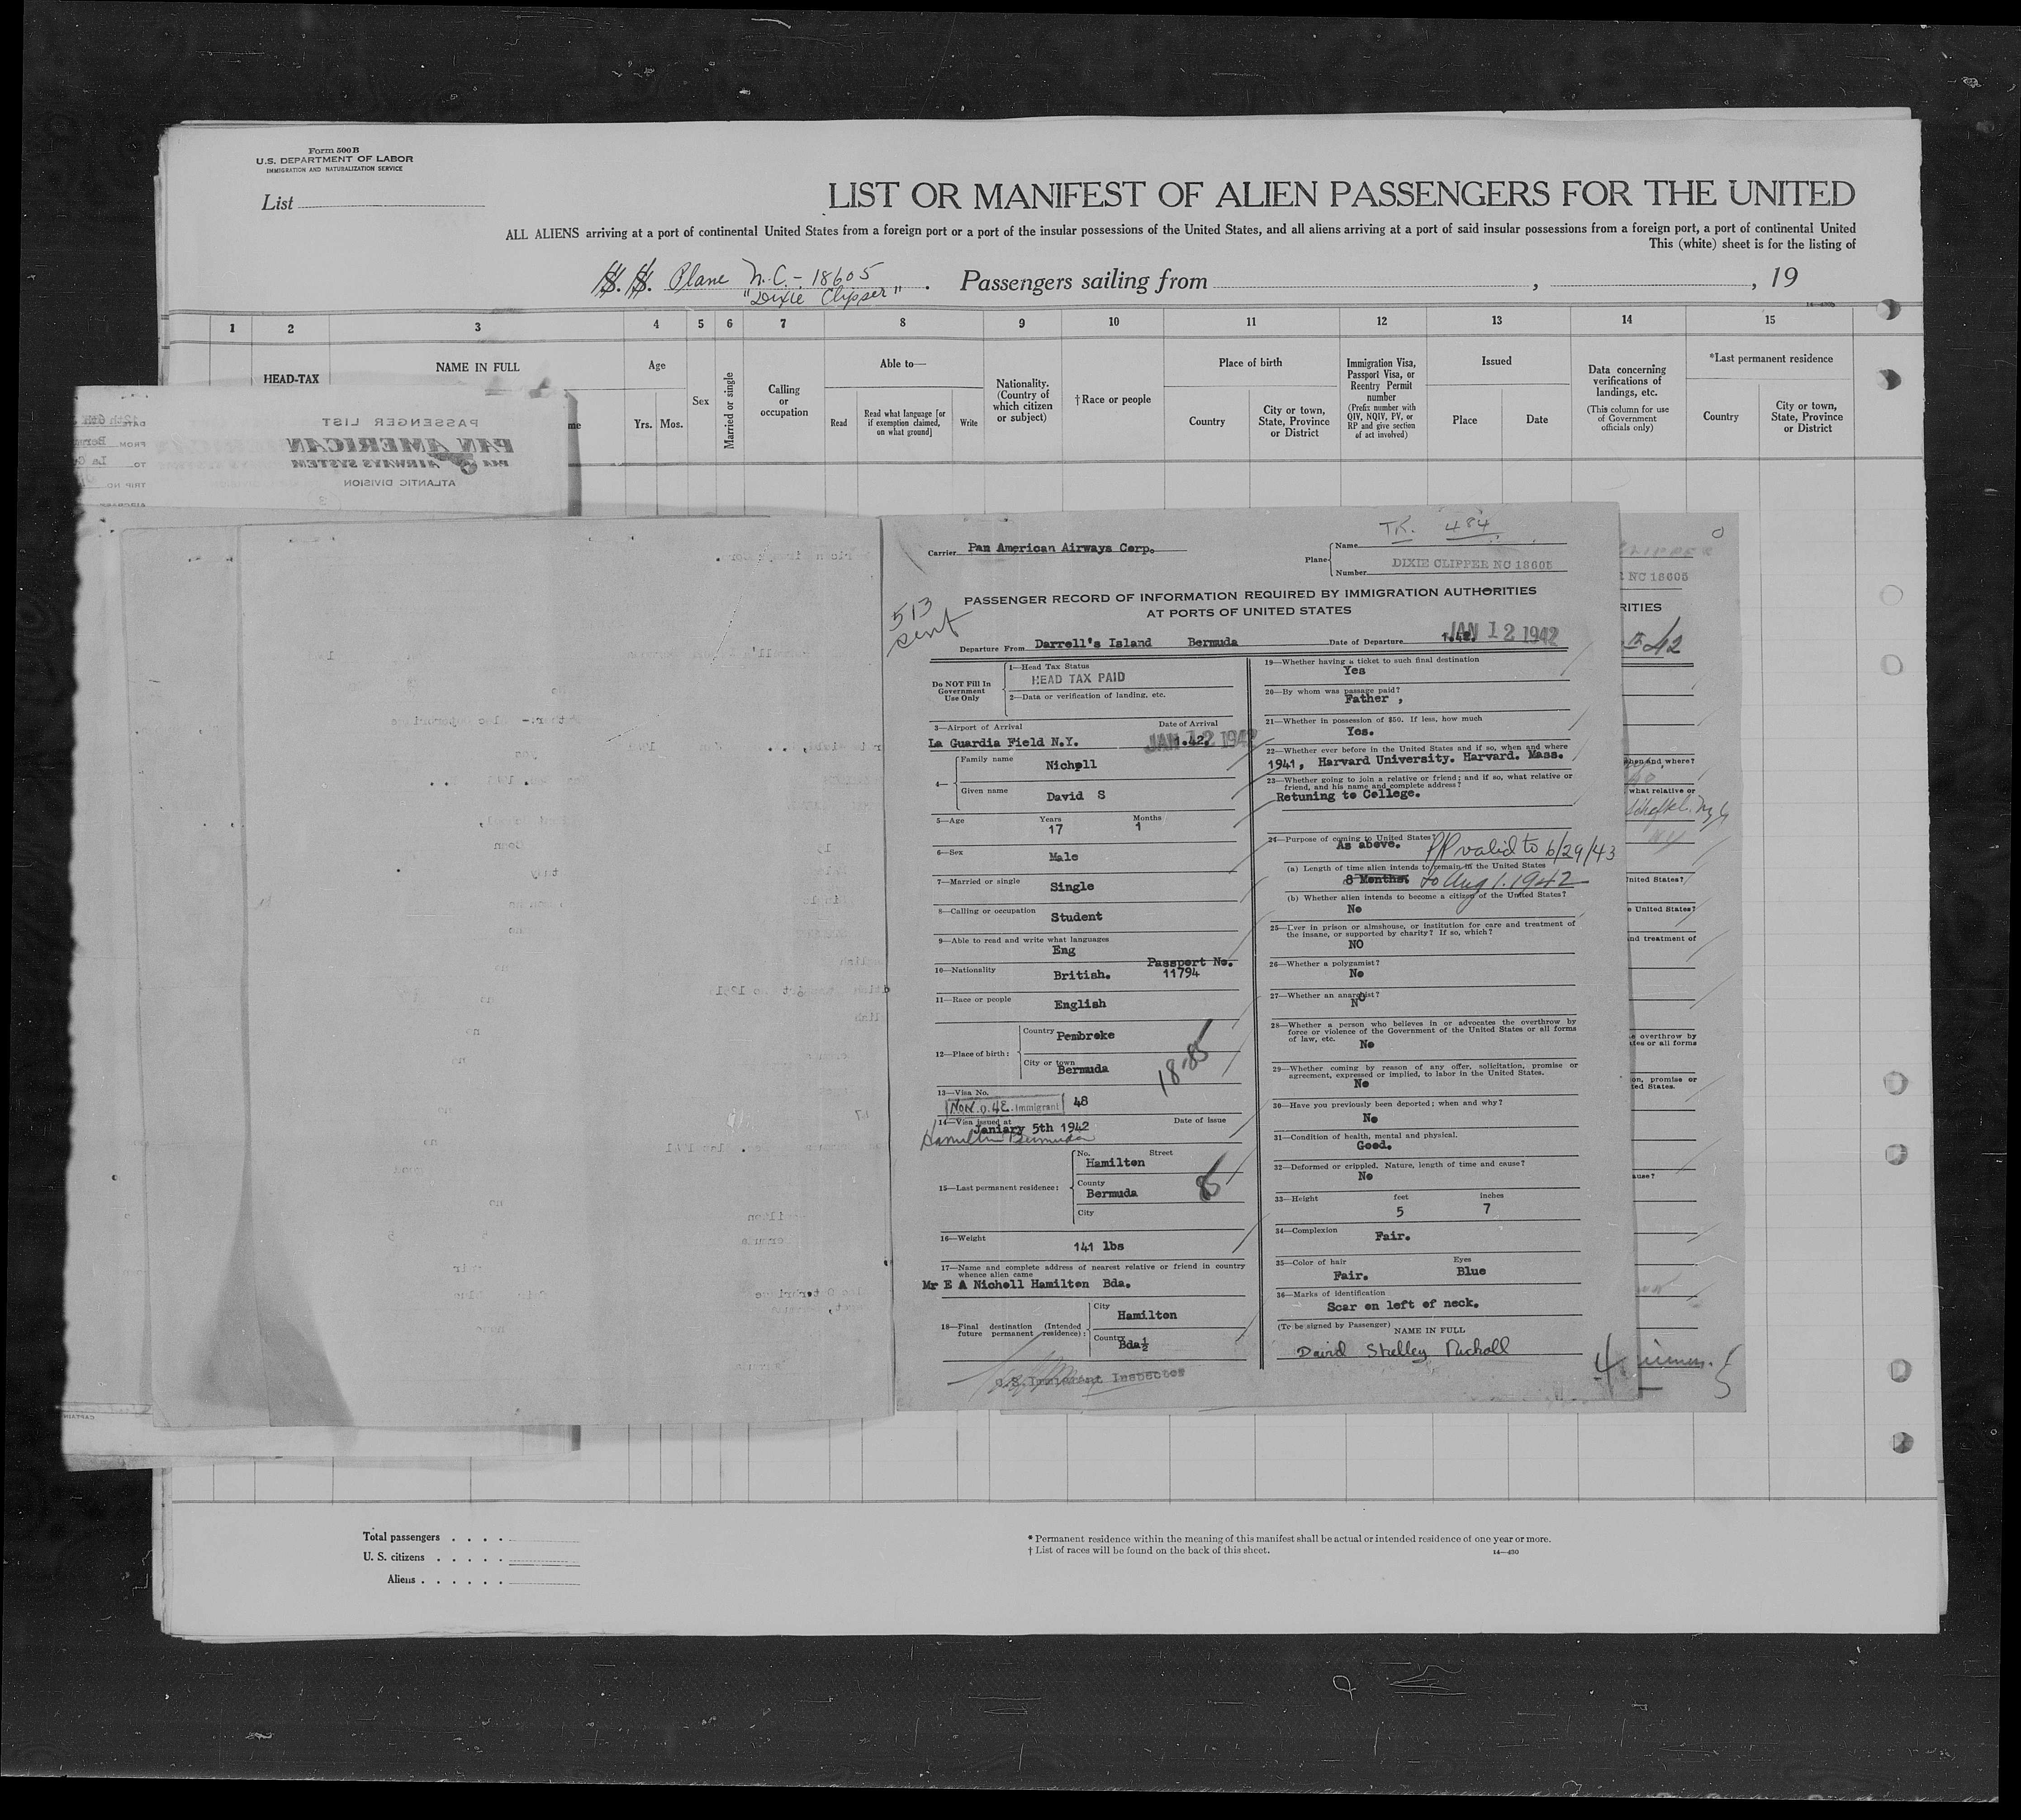 Form 500B
U.S. DEPARTMENT OF LABOR
IMMIGRATION AND NATURALIZATION SERVICE
List
LIST OR MANIFEST OF ALIEN PASSENGERS FOR THE UNITED
ALL ALIENS arriving at a port of continental United States from a foreign port or a port of the insular possessions of the United States, and all aliens arriving at a port of said insular possessions from a foreign port, a port of continental United
This (white) sheet is for the listing of
S. S. Plane N.C.- 18605 . Passengers sailing from , , 19
"Dixie Clipper"
1 2 3 4 5 6 7 8 9 10 11 12 13 14 15
HEAD-TAX
NAME IN FULL
Age
Yrs. Mos.
Sex
Married or single
Calling
or
occupation
Able to—
Read
Read what language [or
if exemption claimed,
on what ground]
Write
Nationality.
(Country of
which citizen
or subject)
†Race or people
Place of birth
Country
City or town,
State, Province
or District
Immigration Visa,
Passport Visa, or
Reentry Permit
number
(Prefix number with
QIV, NQIV, PV, or
RP and give section
of act involved)
Issued
Place
Date
Data concerning
verifications of
landings, etc.
(This column for use
of Government
officials only)
*Last permanent residence
Country
City or town,
State, Province
or District
PASSENGER LIST
PAN AMERICAN
PAN AMERICAN AIRWAYS SYSTEM
ATLANTIC DIVISION
DATE
FROM
TO
TRIP NO.
AIRCRAFT
TR. 484
Carrier Pan American Airways Corp.
Plane Name
Number DIXIE CLIPPER NC 18605
513
sent
PASSENGER RECORD OF INFORMATION REQUIRED BY IMMIGRATION AUTHORITIES
AT PORTS OF UNITED STATES
Departure From Darrell's Island Bermuda Date of Departure 1.42. JAN 12 1942
Do NOT Fill In
Government
Use Only
1—Head Tax Status
HEAD TAX PAID
2—Data or verification of landing, etc.
3—Airport of Arrival Date of Arrival
La Guardia Field N.Y. 1.42. JAN 12 1942
4— Family name
Nicholl
Given name
David S
5—Age Years Months
17 1
6—Sex
Male
7—Married or single
Single
8—Calling or occupation
Student
9—Able to read and write what languages
Eng
10—Nationality
British.
Passport No.
11794
11—Race or people
English
12—Place of birth:
Country
Pembroke
City or town
Bermuda
18-85
13—Visa No.
Non. Q. 4E. Immigrant 48
14—Visa issued at Date of issue
Janiary 5th 1942
Hamilton Bermuda
15—Last permanent residence:
No. Street
Hamilton
County
Bermuda
City
85
16—Weight
141 lbs
17—Name and complete address of nearest relative or friend in country
whence alien came
Mr E A Nicholl Hamilton Bda.
18—Final destination (Intended
future permanent residence):
City
Hamilton
Country
Bda½
U.S. Immigrant Inspector
19—Whether having a ticket to such final destination
Yes
20—By whom was passage paid?
Father ,
21—Whether in possession of $50. If less, how much
Yes.
22—Whether ever before in the United States and if so, when and where
1941, Harvard University. Harvard. Mass.
23—Whether going to join a relative or friend; and if so, what relative or
friend, and his name and complete address?
Retuning to College.
24—Purpose of coming to United States?
As above. PP valid to 6/29/43
(a) Length of time alien intends to remain in the United States
8 Months. to Aug 1. 1942
(b) Whether alien intends to become a citizen of the United States?
No
25—Ever in prison or almshouse, or institution for care and treatment of
the insane, or supported by charity? If so, which?
NO
26—Whether a polygamist?
No
27—Whether an anarchist?
NO
28—Whether a person who believes in or advocates the overthrow by
force or violence of the Government of the United States or all forms
of law, etc.
No
29—Whether coming by reason of any offer, solicitation, promise or
agreement, expressed or implied, to labor in the United States.
No
30—Have you previously been deported; when and why?
No
31—Condition of health, mental and physical.
Good.
32—Deformed or crippled. Nature, length of time and cause?
No
33—Height feet inches
5 7
34—Complexion
Fair.
35—Color of hair Eyes
Fair. Blue
36—Marks of identification
Scar on left of neck.
(To be signed by Passenger) NAME IN FULL
David Shelley Nicholl
NC 18605
RITIES
42
when and, where?
what relative or
United States?
e United States?
and treatment of
e overthrow by
ates or all forms
on, promise or
ted States.
ause?
CAPTAIN
Total passengers
U. S. citizens
Aliens
* Permanent residence within the meaning of this manifest shall be actual or intended residence of one year or more.
† List of races will be found on the back of this sheet.
14—430